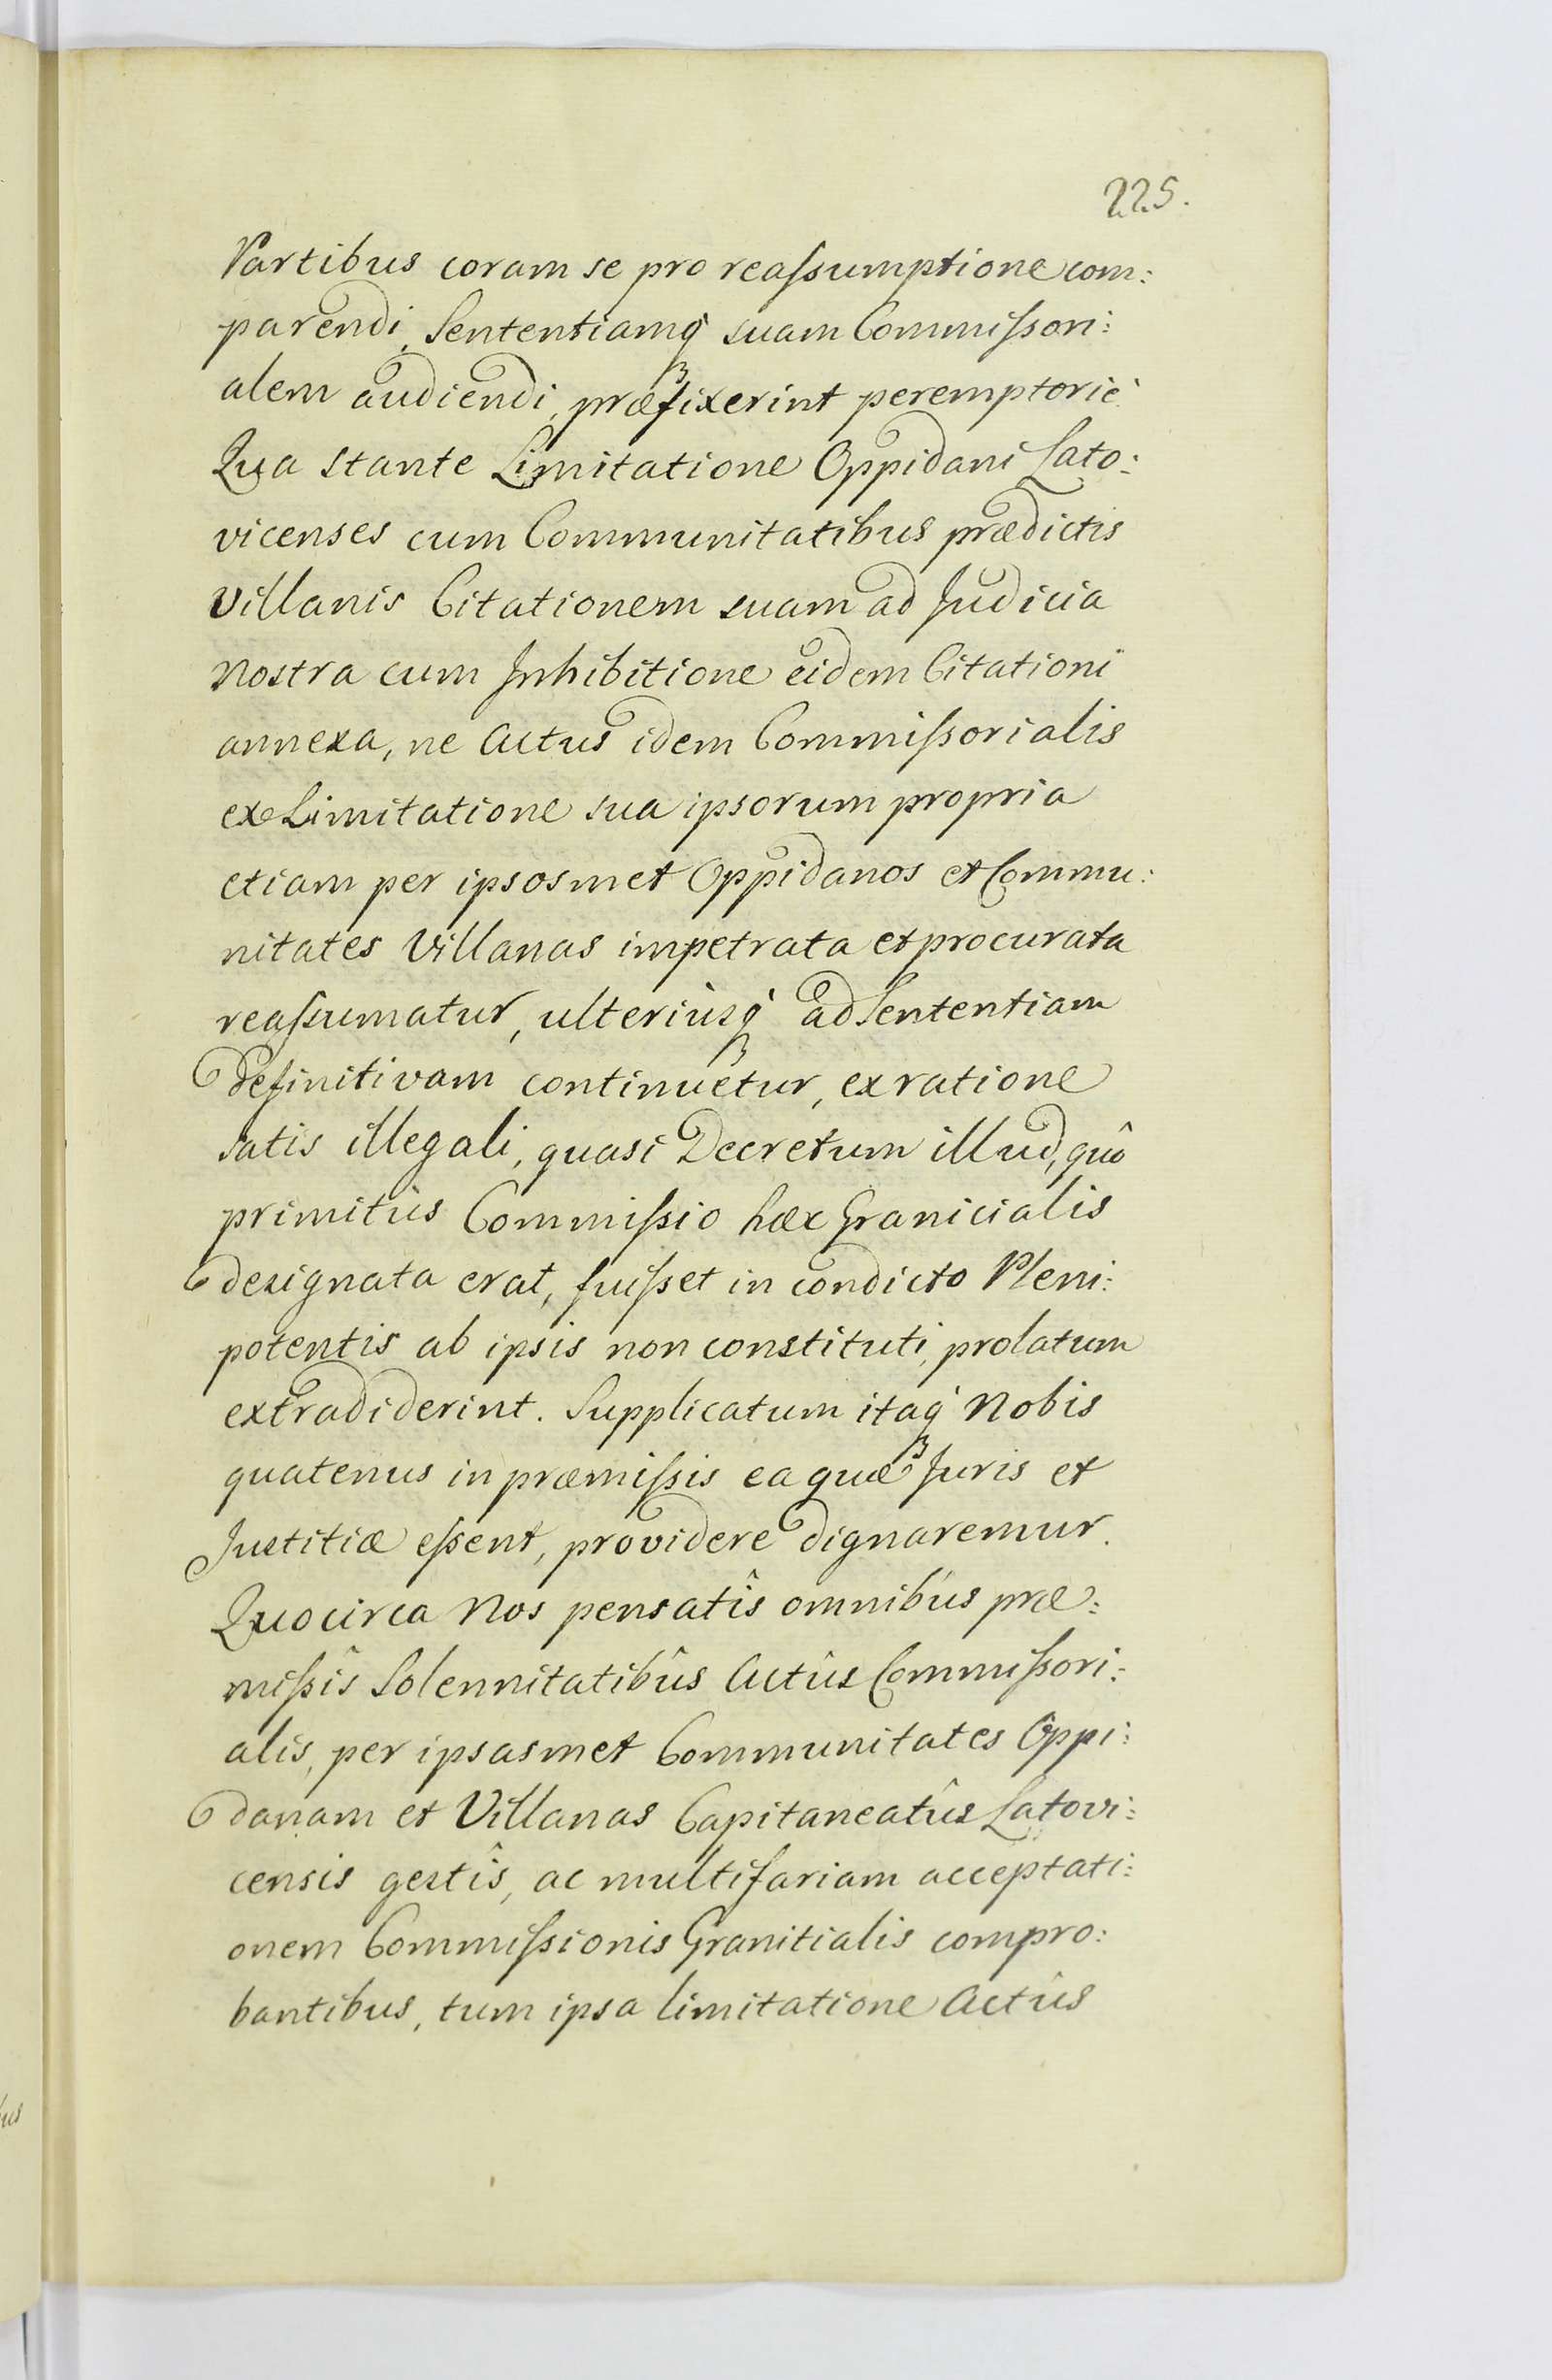 225.
Partibus coram se pro reaſsumptione com:
parendi, Sententiamq́ʒ suam Commiſsori:
alem audiendi, præfixerint peremptoriè
Qua stante Limitatione Oppidani Lato:
vicenses cum Communitatibus prædictis
Villanis Citationem suam ad Judicia
Nostra cum Inhibitione eidem Citationi
annexa, ne Actus idem Commiſsorialis
ex Limitatione sua ipsorum propria
etiam per ipsosmet Oppidanos et Commu:
nitates Villanas impetrata et procurata
reaſsumatur, ulteriùsq́ʒ ad Sententiam
definitivam continuetur, ex ratione
satis illegali, quasi Decretum illud, quô
primitùs Commiſsio hæc Granicialis
designata erat, fuiſset in condicto Pleni:
potentis ab ipsis non constituti, prolatum
extradiderint. Supplicatum itaq́ʒ Nobis
quatenus in præmiſsis ea quæ Juris et
Justitiæ eſsent, providere dignaremur.
Quocirca Nos pensatîs omnibus præ:
miſsîs Solennitatibûs Actûs Commiſsori:
alis, per ipsasmet Communitates Oppi:
danam et Villanas Capitaneatûs Latovi:
censis gestîs, ac multifariam acceptati:
onem Commiſsionis Granitialis compro:
bantibus, tum ipsa limitatione Actûs
us